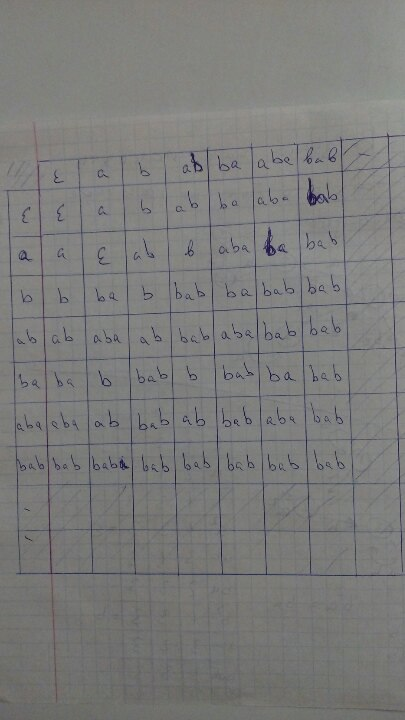 ε a b ab ba aba bab
ε ε a b ab ba aba bab
a a ε ab b aba ba bab
b b ba b bab ba bab bab
ab ab aba ab bab aba bab bab
ba ba b bab b bab ba bab
aba aba ab bab ab bab aba bab
bab bab baba bab bab bab bab bab